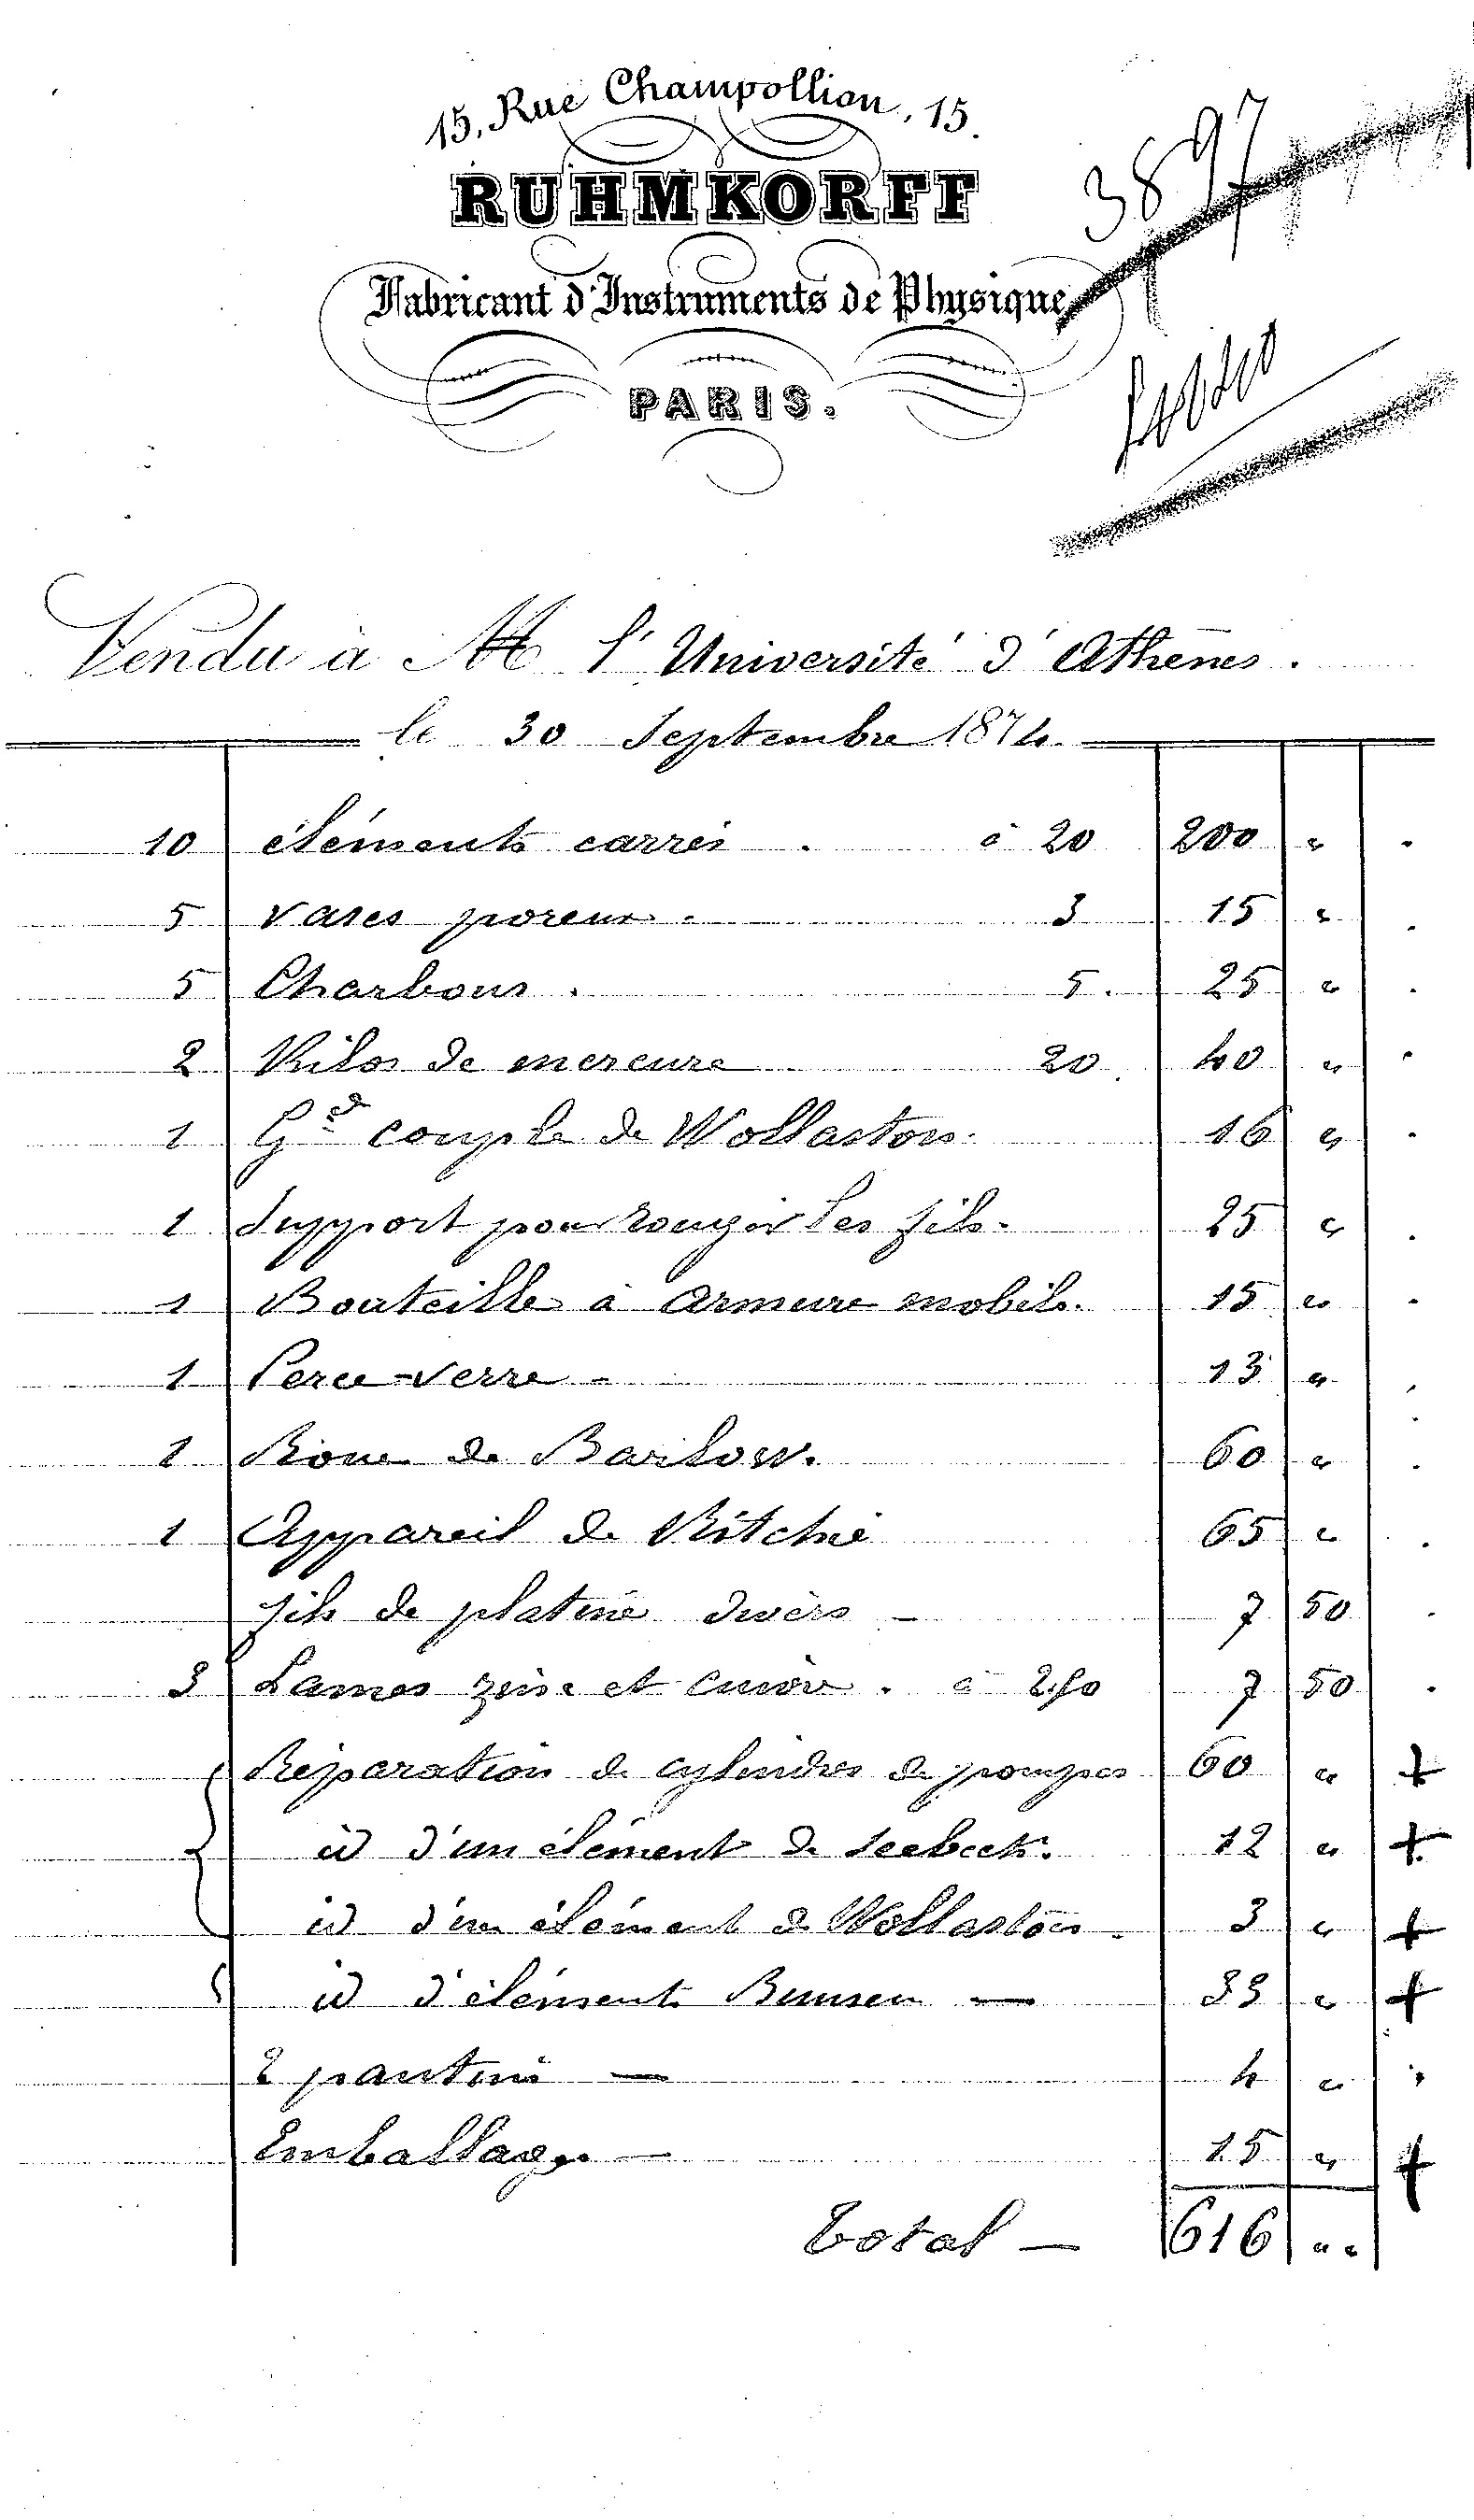 15, Rue Champollion, 15.
RUHMKORFF
Fabricant d'Instruments de Physique
PARIS.
3897
Vendu à M l'Université d'Athènes.
le 30 Septembre 1874.
10 éléments carrés . à 20 200 "
5 Vases poreux . 3 15 "
5 Charbons . 5. 25 "
2 Kilos de mercure 20. 40 "
1 Gd couple de Wollaston. 16 "
1 Support pour rougir les fils. 25 "
1 Bouteille à armure mobile. 15 "
1 Perce-verre - 13 "
1 Roue de Barlow. 60 "
1 Appareil de Ritchie 65 "
fils de platine divers - 7 50
3 Lames zinc et cuivre . à 2.50 7 50
Réparation de cylindres de pompes 60 " +
id d'un élément de Seebeck. 12 " +
id d'un élément de Wollaston. 3 " +
id d'éléments Bunsen — 33 " +
2 pantins — 4 "
Emballage — 15 " +
Total — 616 " "